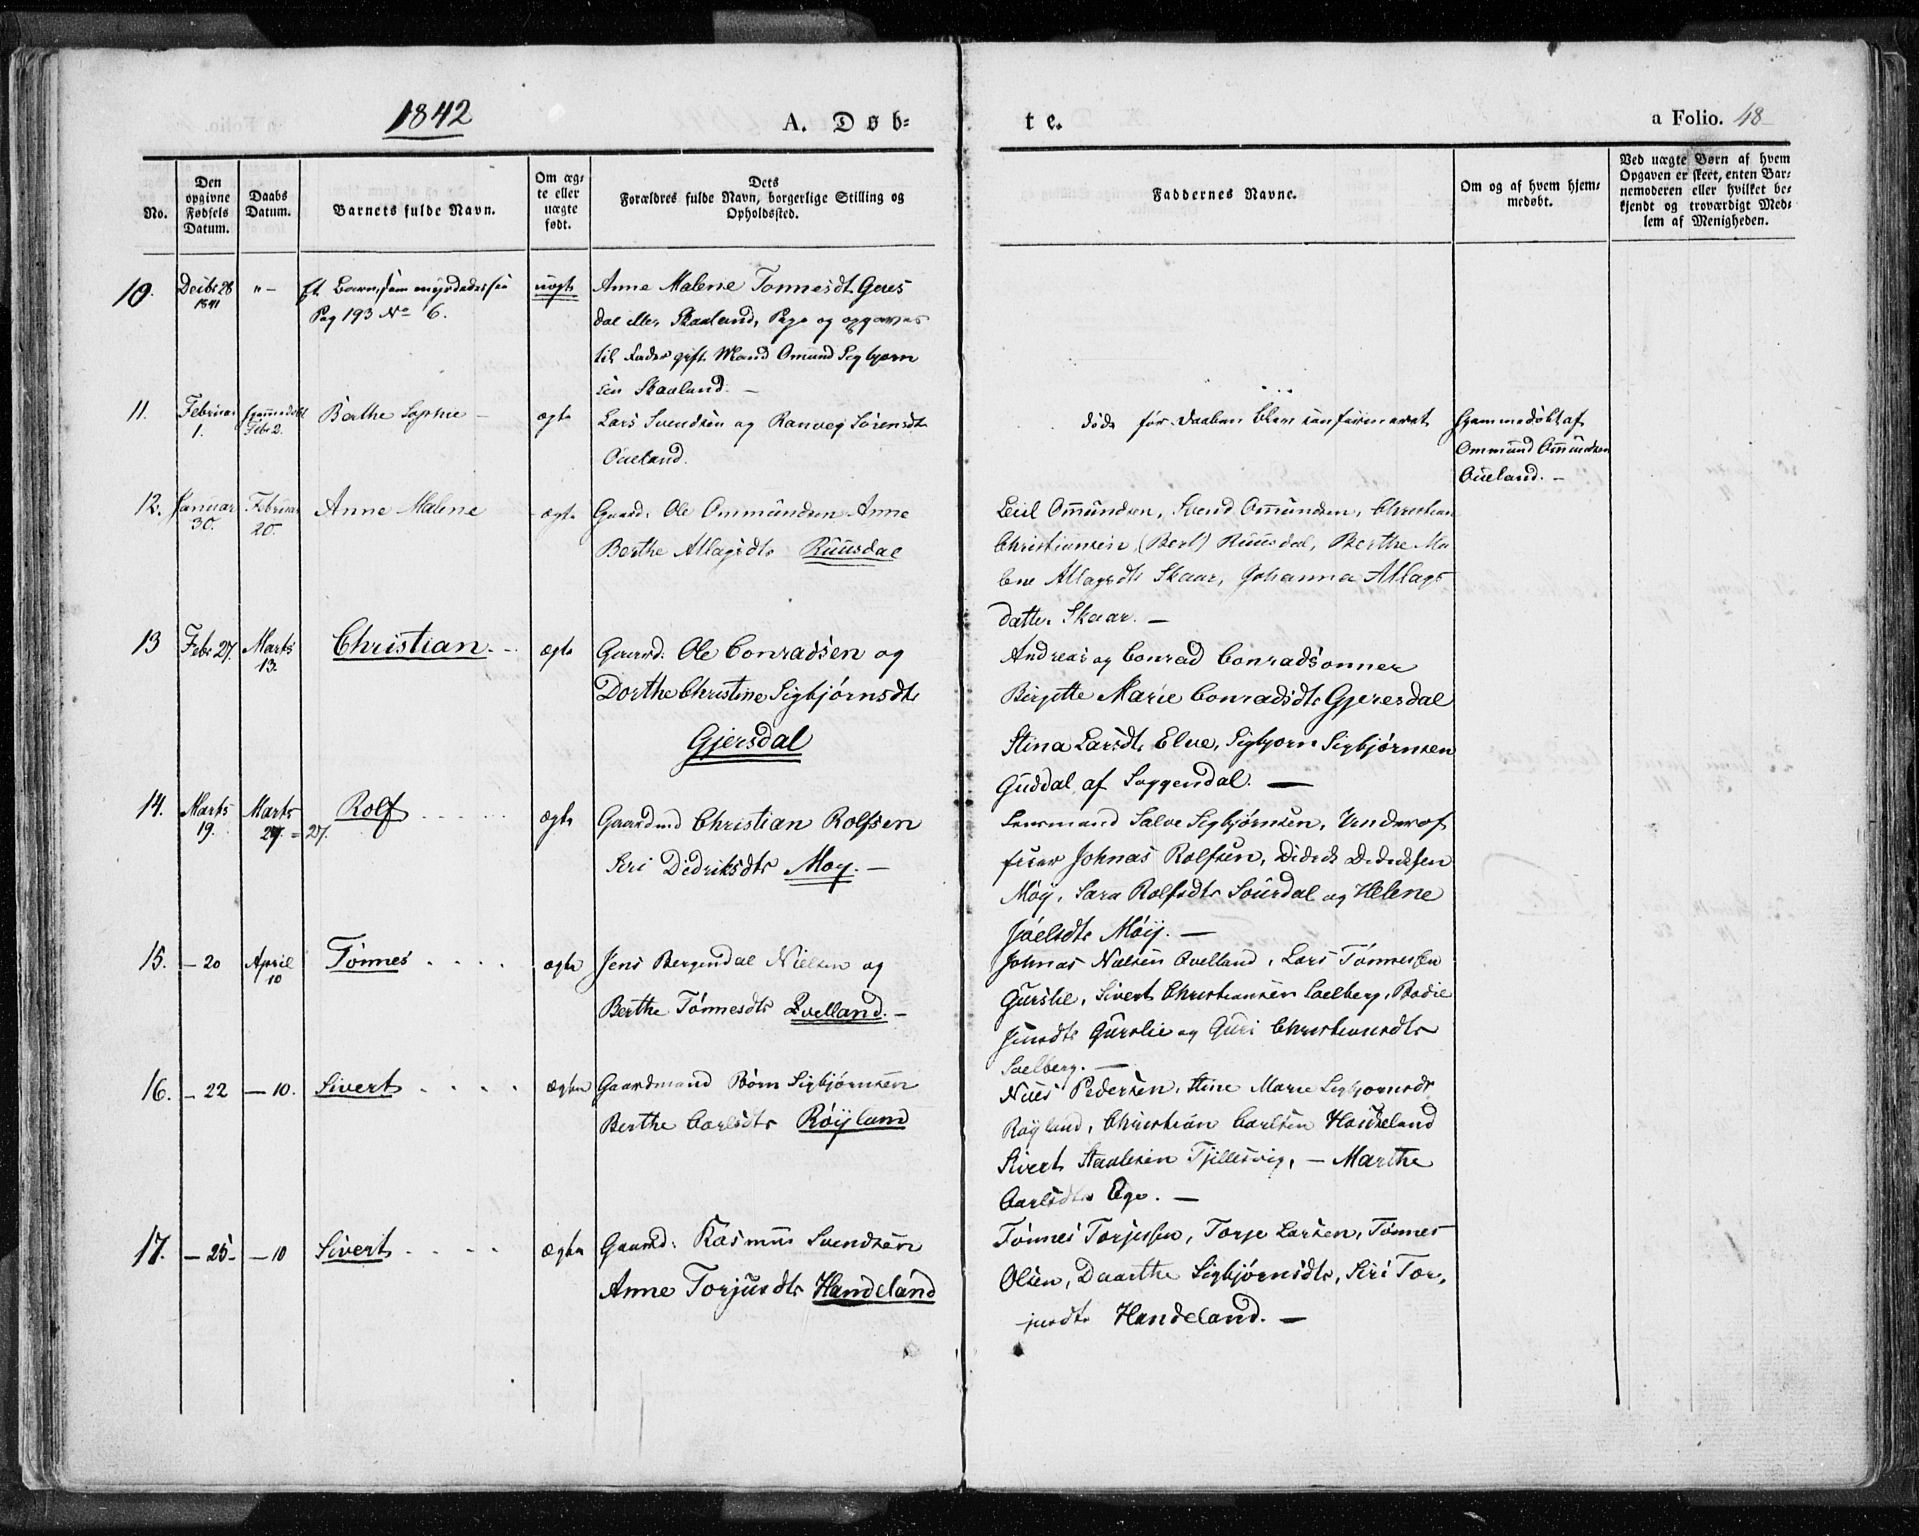 1842
A. Døb-
te.
a Folio. 48
No.
Den opgivne Fødsels Datum.
Daabs Datum.
Barnets fulde Navn.
Om æg-
te eller
uægte
født.
Dets
Forældres fulde Navn, borgerlige Stilling og
Opholdssted.
Faddernes Navne.
Om og af hvem hjem-
medøbt.
Ved uægte Børn af hvem
Opgaven er skeet, enten Bar-
nemoderen eller hvilket be-
kjendt og troværdigt Med-
lem af Menigheden.
10. Decbr 28 1841 "- Et Barn, som myrdedes see
Pag 193 No 6.
uægte
Anne Malene Tønnesdt Geres
dal eller Skaaland, Pige og opgaves
til Fader gift Mand Omund Sigbjørn
sen Skaaland. -
11. Februar 1. Hjemmedøbt Febr 2. Berthe Sophie - ægte
Lars Svendsen og Ranveg Sørensdt
Oueland.
døde før Daaben blev confirmeret
Hjemmedøbt af
Ommund Omundsen
Oueland. -
12. Januar 30. Februar 20. Anne Malene - ægte
Gaard: Ole Ommundsen Anne
Berthe Atlagsdtr Ruusdal
Leul Omundsen, Svend Omundsen, Christian
Christiansen, (Berl) Ruusdal, Berthe Ma
lene Atlagsdt Skaar, Johanna Atlags
datter Skaar. -
13 Febr 27. Marts 13. Christian - ægte
Gaard: Ole Conradsen og
Dorthe Christine Sigbjørnsdtr
Gjersdal
Andreas og Conrad Conradsønner
Birgitte Marie Conradsdtr Gjeresdal
Stina Larsdt Elve, Sigbjørn Sigbjørnsen
Guddal af Soggendal. -
14. Marts 19. Marts 27. = 27. Rolf ægte
Gaardmd Christian Rolfsen
Siri Didriksdtr Moy. -
Lensmand Salve Sigbjørnsen, Underof
ficer Johnas Rolfsen, Didrik Didriksen
Møy, Sara Rolfsdtr Sourdal og Helene
Joelsdtr Møij. -
15. - 20 April 10 Tønnes ægte
Jens Bergendal Nielsen og
Berthe Tønnesdtr Qvelland. -
Johnas Nielsen Qvelland, Lars Tønnessen
Gurslie, Sivert Christiansen Soelberg, Bodie
Jensdtr Gurslie og Guri Christiansdtr
Soelberg. -
16. - 22 - 10. Sivert ægte
Gaardmand Børn Sigbjørnsen
Berthe Carlsdtr Røijland
Niels Pedersen, Stine Marie Sigbjørnsdt
Røyland, Christian Carlsen Haukeland
Sivert Staalesen Tjellesvig, - Marthe
Carlsdtr Ege. -
17. - 25 - - 10 Sivert ægte
Gaardmd: Rasmus Svendsen
Anne Torjusdtr Handeland
Tønnes Torjussen, Torje Larsen, Tønnes
Olsen, Daarthe Sigbjørnsdtr, Siri Tor,
jusdtr Handeland. -